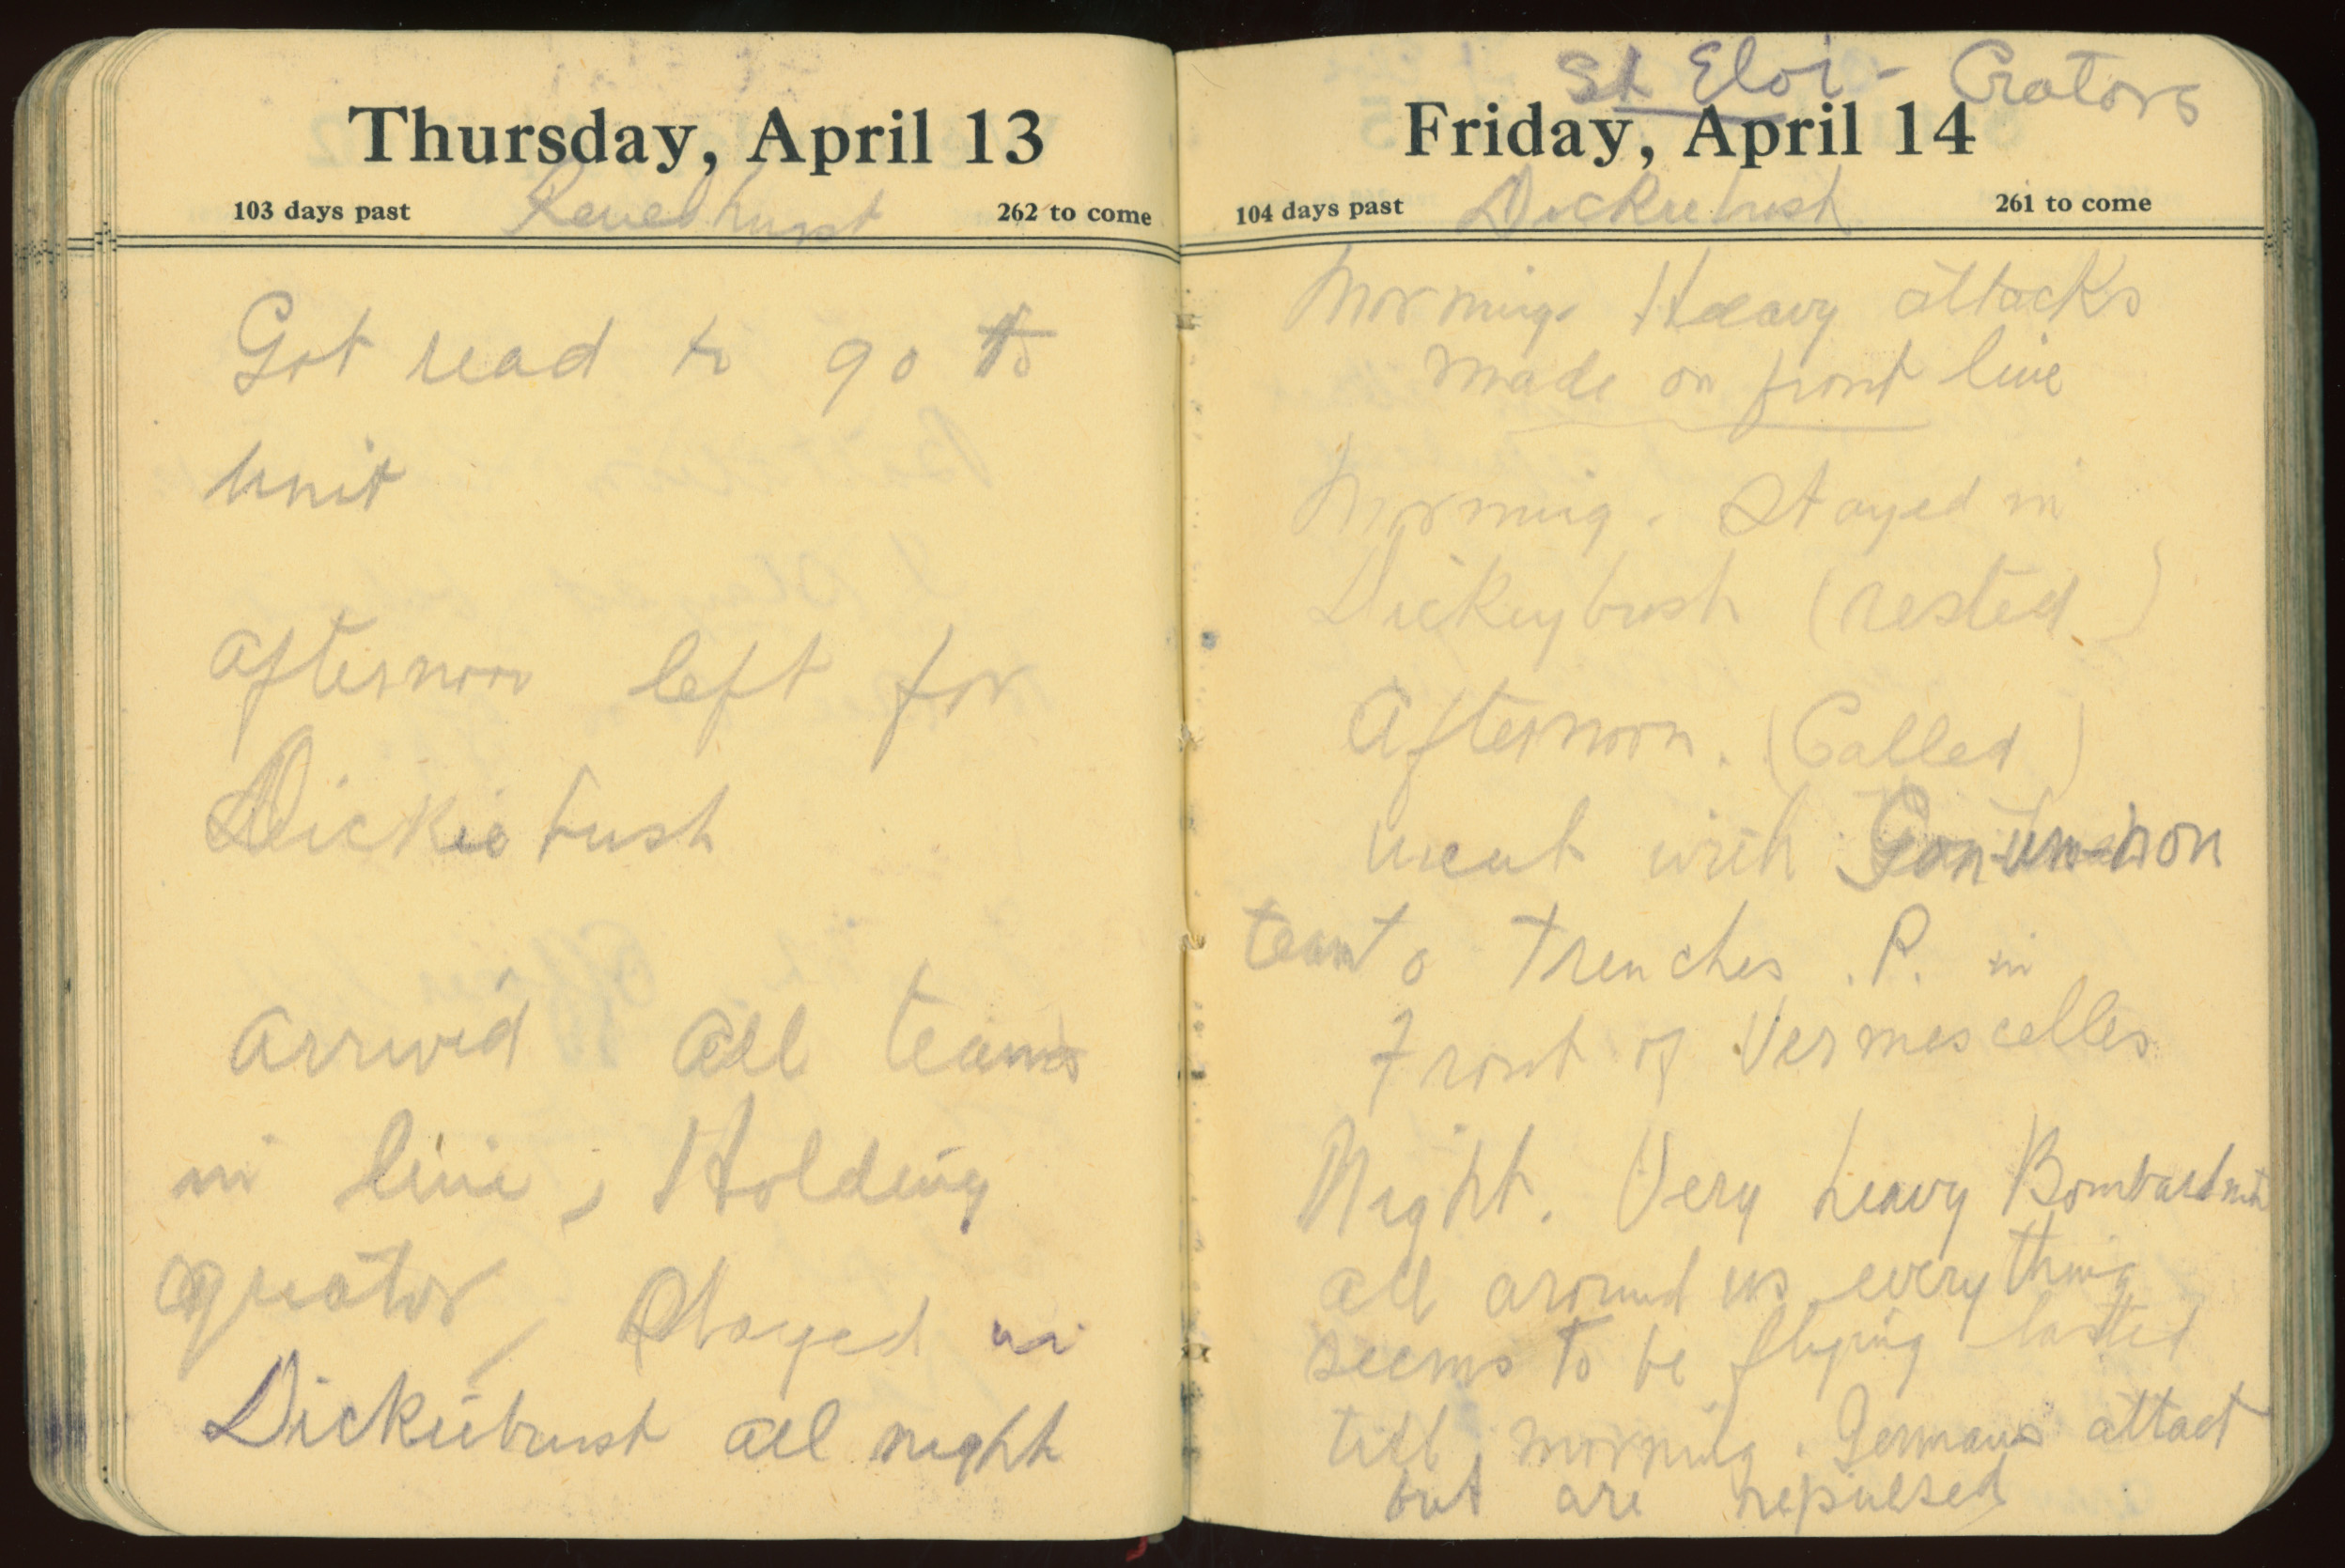 Thursday, April 13
103 days past
262 to come
Got read to go to
unit
afternoon left for
Dickiebush
arrived all teams
in line, Holding
Stayed in
Dickiebush all night
St Eloi - Crators
Friday, April 14
104 days past Dickiebush 261 to come
Morning Heavy attacks
made on front line
Morning. Stayed in
Dickeybush (rested)
Afternoon. (Called)
went with
team to Trenches . P. in
Front of
Night. Very heavy Bombardmt
all around us everything
seems to be flying lasted
till morning. Germans attact
but are repulsed